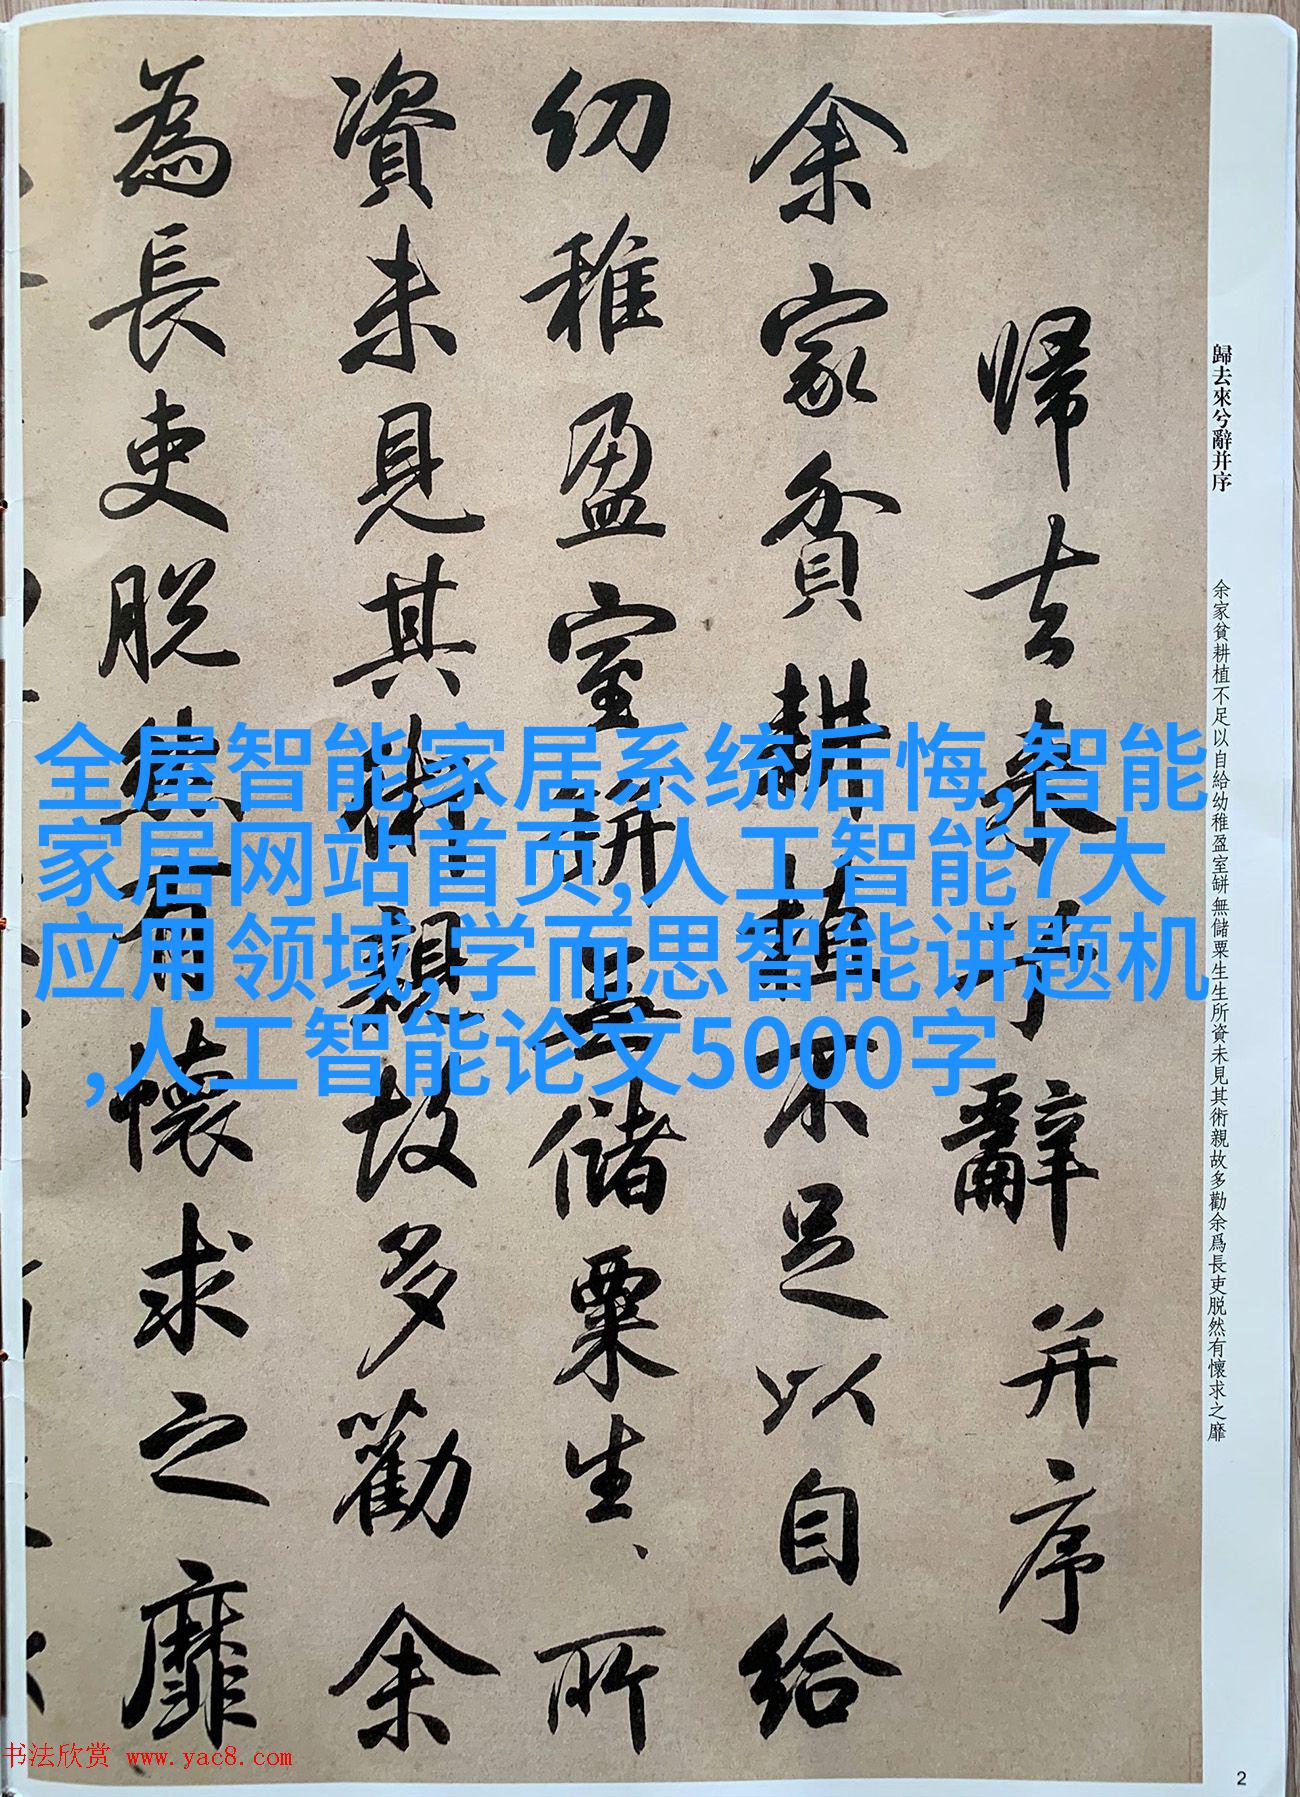 歸去來兮辭并序
余家貧耕植不足以自給幼稚盈室缾無儲粟生生所資未見其術親故多勸余爲長吏脱然有懷求之靡
帰去来兮辭并序
余家貧耕植不足以自給
幼稚盈室缾无儲粟生、所
資未見其術親故多勸余
為長吏脱然有懷求之靡
全屋智能家居系统后悔,智能
家居网站首页,人工智能7大
应用领域,学而思智能讲题机
,人工智能论文5000字
书法欣赏 www.yac8.com
2